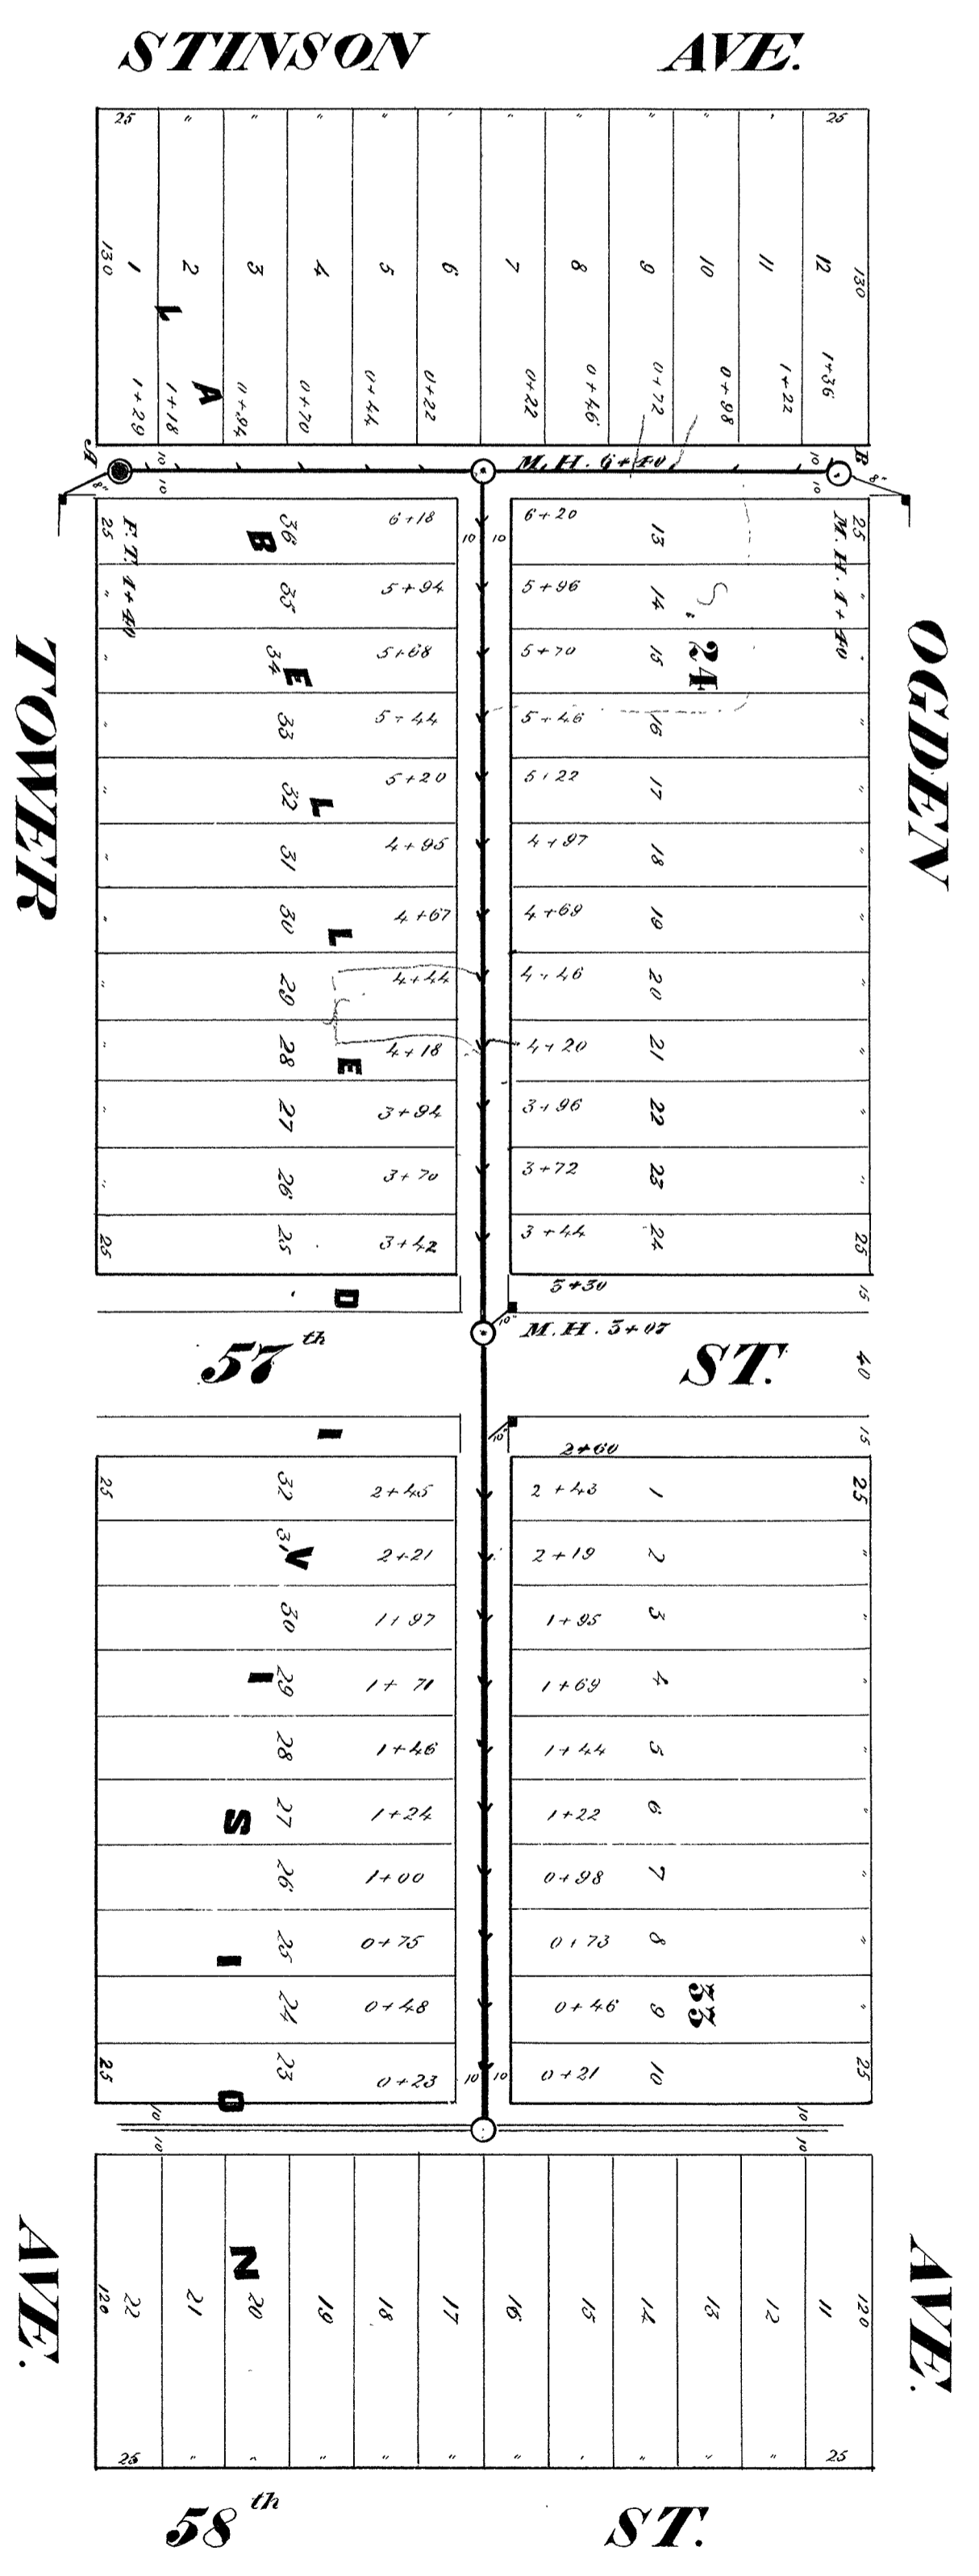 STINSON AVE.
25 " " " " " " " " " " 25
130 1 2 3 4 5 6 7 8 9 10 11 12 130
1+29 1+18 0+94 0+70 0+44 0+22 0+22 0+46 0+72 0+98 1+22 1+36
A 10 M.H. 6+40 10 B
8" 10 10 8"
TOWER AVE.
OGDEN AVE.
F.T. 1+40
M.H. 1+40
BELLE
LA
DIVISION
25 36 6+18 10 10 6+20 13 25
" 35 5+94 5+96 14 "
" 34 5+68 5+70 15 24 "
" 33 5+44 5+46 16 "
" 32 5+20 5+22 17 "
" 31 4+95 4+97 18 "
" 30 4+67 4+69 19 "
" 29 4+44 4+46 20 "
" 28 4+18 4+20 21 "
" 27 3+94 3+96 22 "
" 26 3+70 3+72 23 "
25 25 3+42 3+44 24 25
3+30 15
10" M.H. 3+07
57th ST. 40
10" 2+60 15
25 32 2+45 2+43 1 25
31 2+21 2+19 2 "
30 1+97 1+95 3 "
29 1+71 1+69 4 "
28 1+46 1+44 5 "
27 1+24 1+22 6 "
26 1+00 0+98 7 "
25 0+75 0+73 8 "
24 0+48 0+46 9 33 "
25 23 0+23 10 10 0+21 10 25
10 10
10 10
120 22 21 20 19 18 17 16 15 14 13 12 11 120
25 " " " " " " " " " " 25
58th ST.